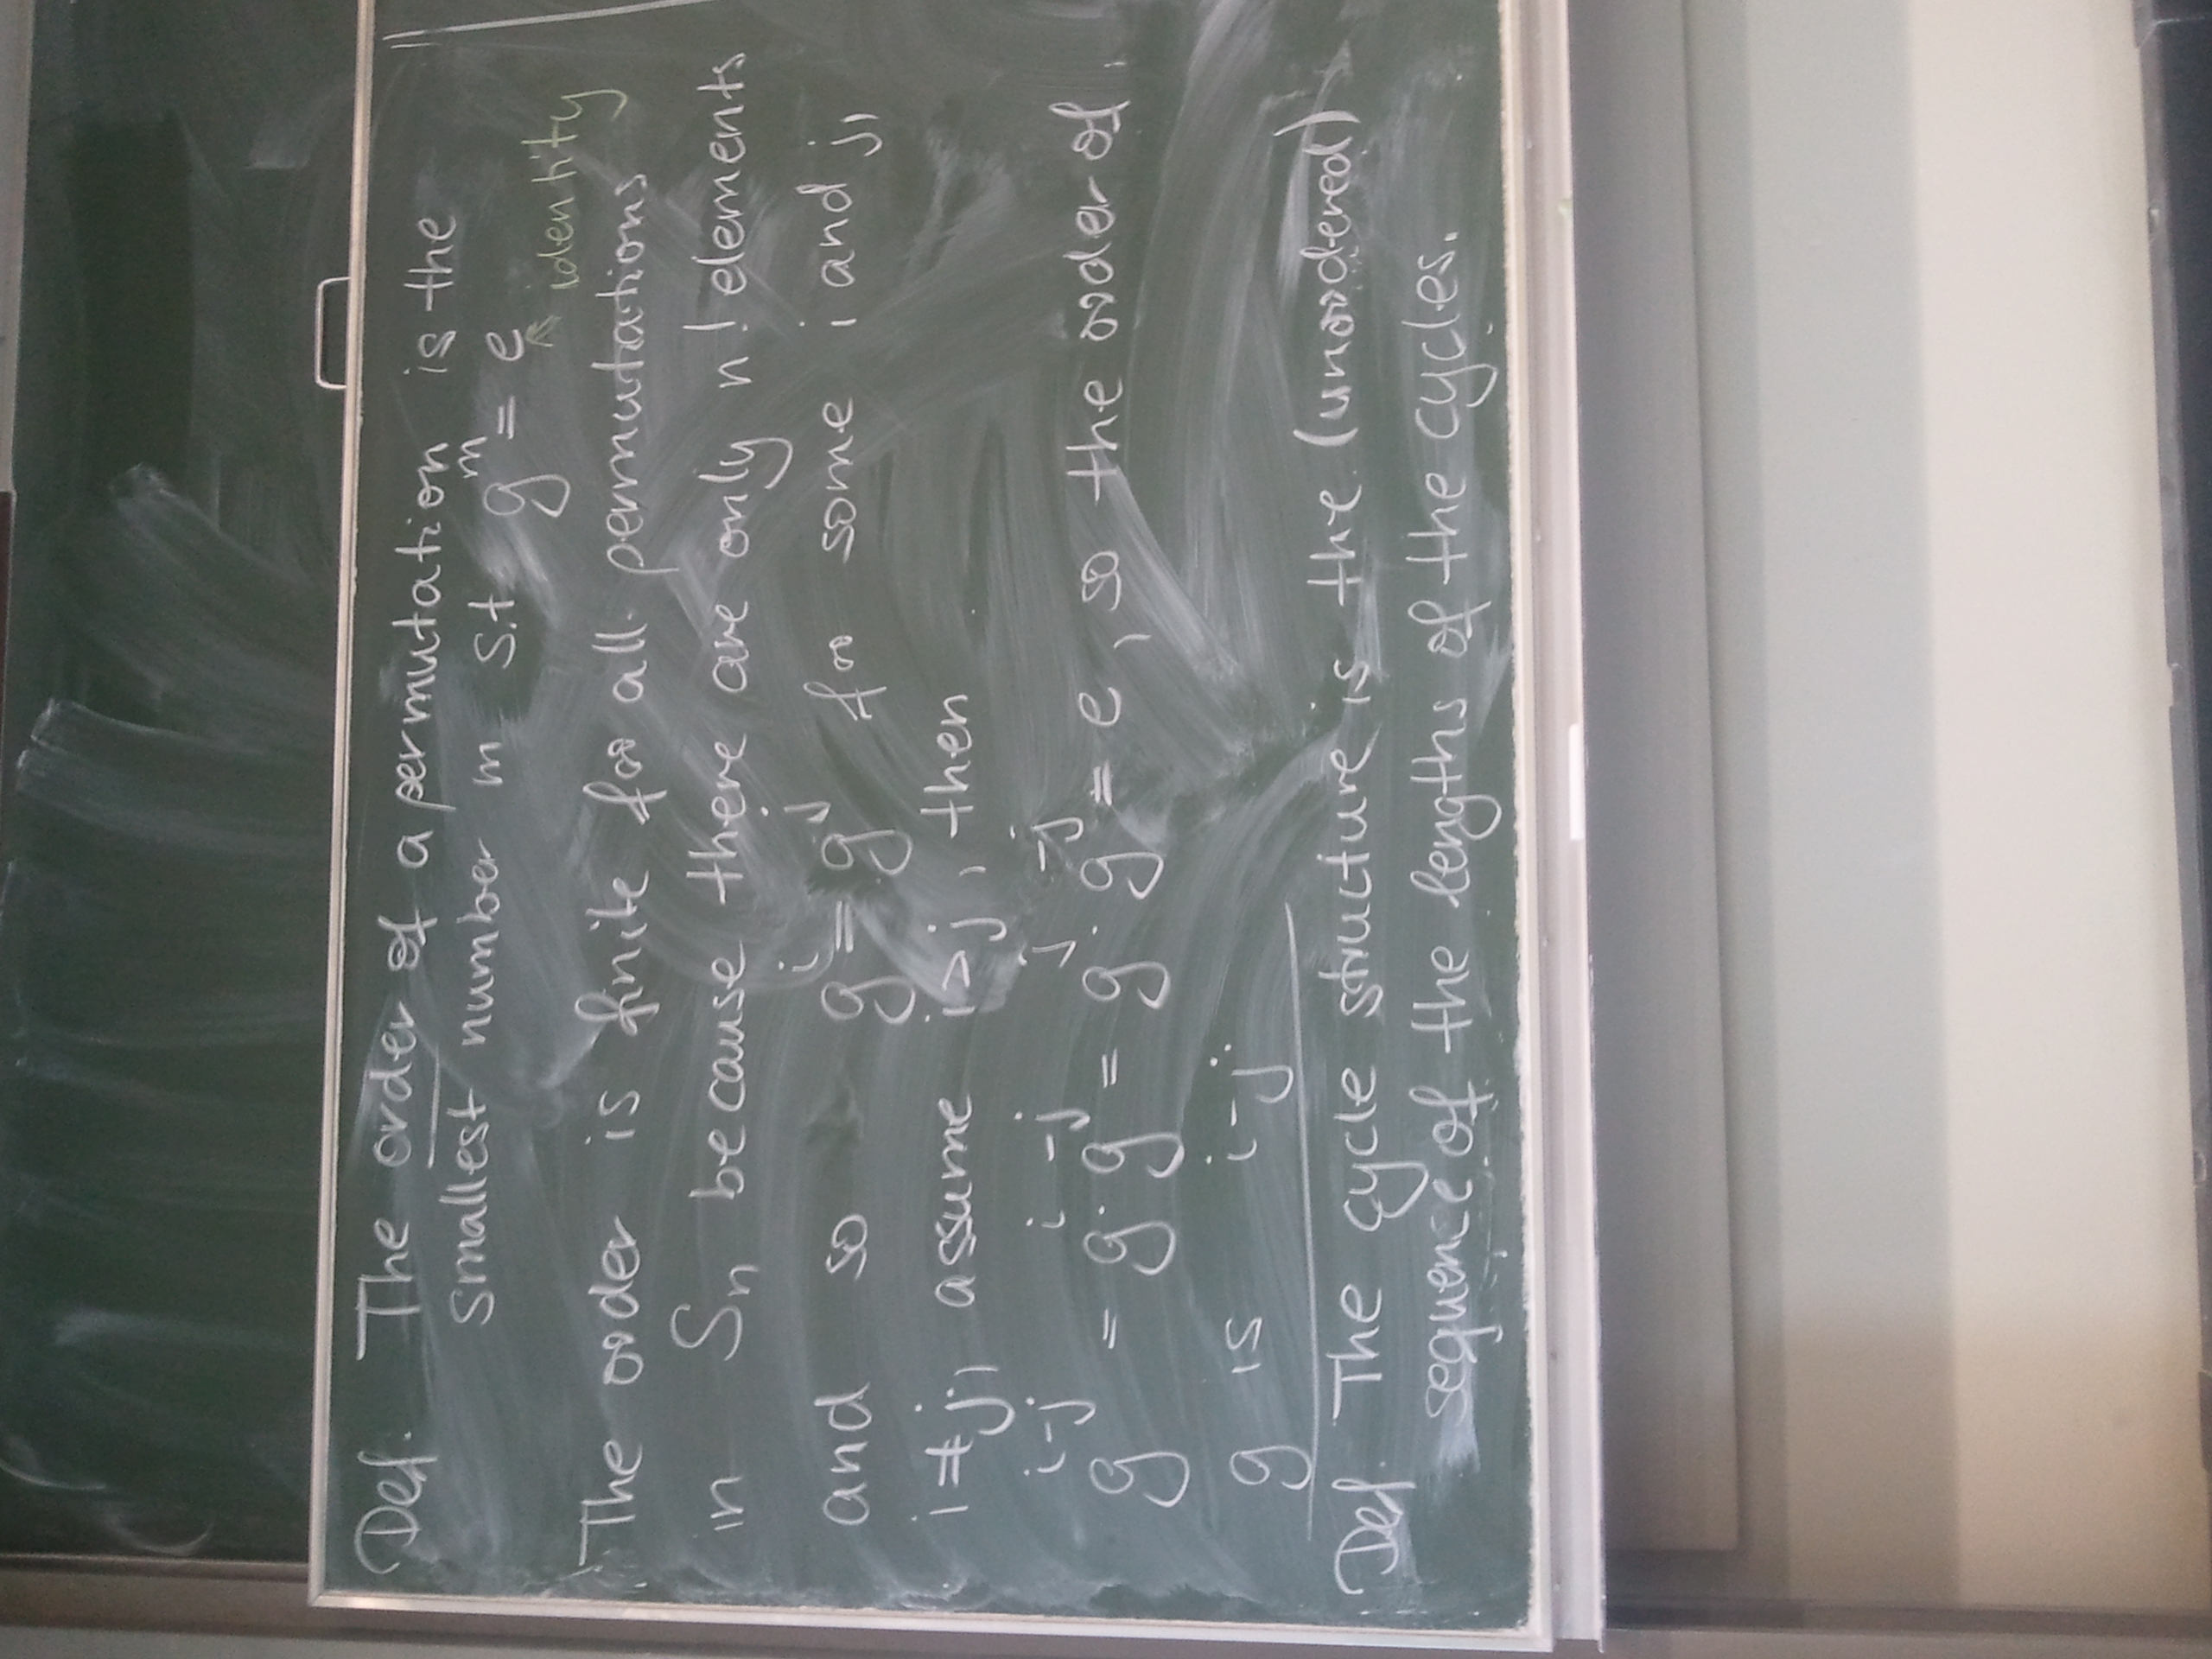 Def. The order of a permutation is the
smallest number m s.t. g^m = e
identity
The order is finite for all permutations
in Sn because there are only n! elements
and so g^i = g^j for some i and j,
i≠j, assume i>j, then
g^i-j = g^i·g^-j = g^j·g^-j = e, so the order of
g is i-j
Def. The cycle structure is the (unordered)
sequence of the lengths of the cycles.